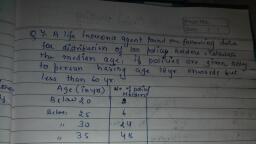 Q 7. A life insurance agent found the following data
for distribution of ages of 100 policy holders. Calculate
the median age, if policies are given only
to person having age 18 yr onwards but
less than 60 yr.
Age (in yr) No of policy holders
Below 20 2
Below 25 6
" 30 24
" 35 45